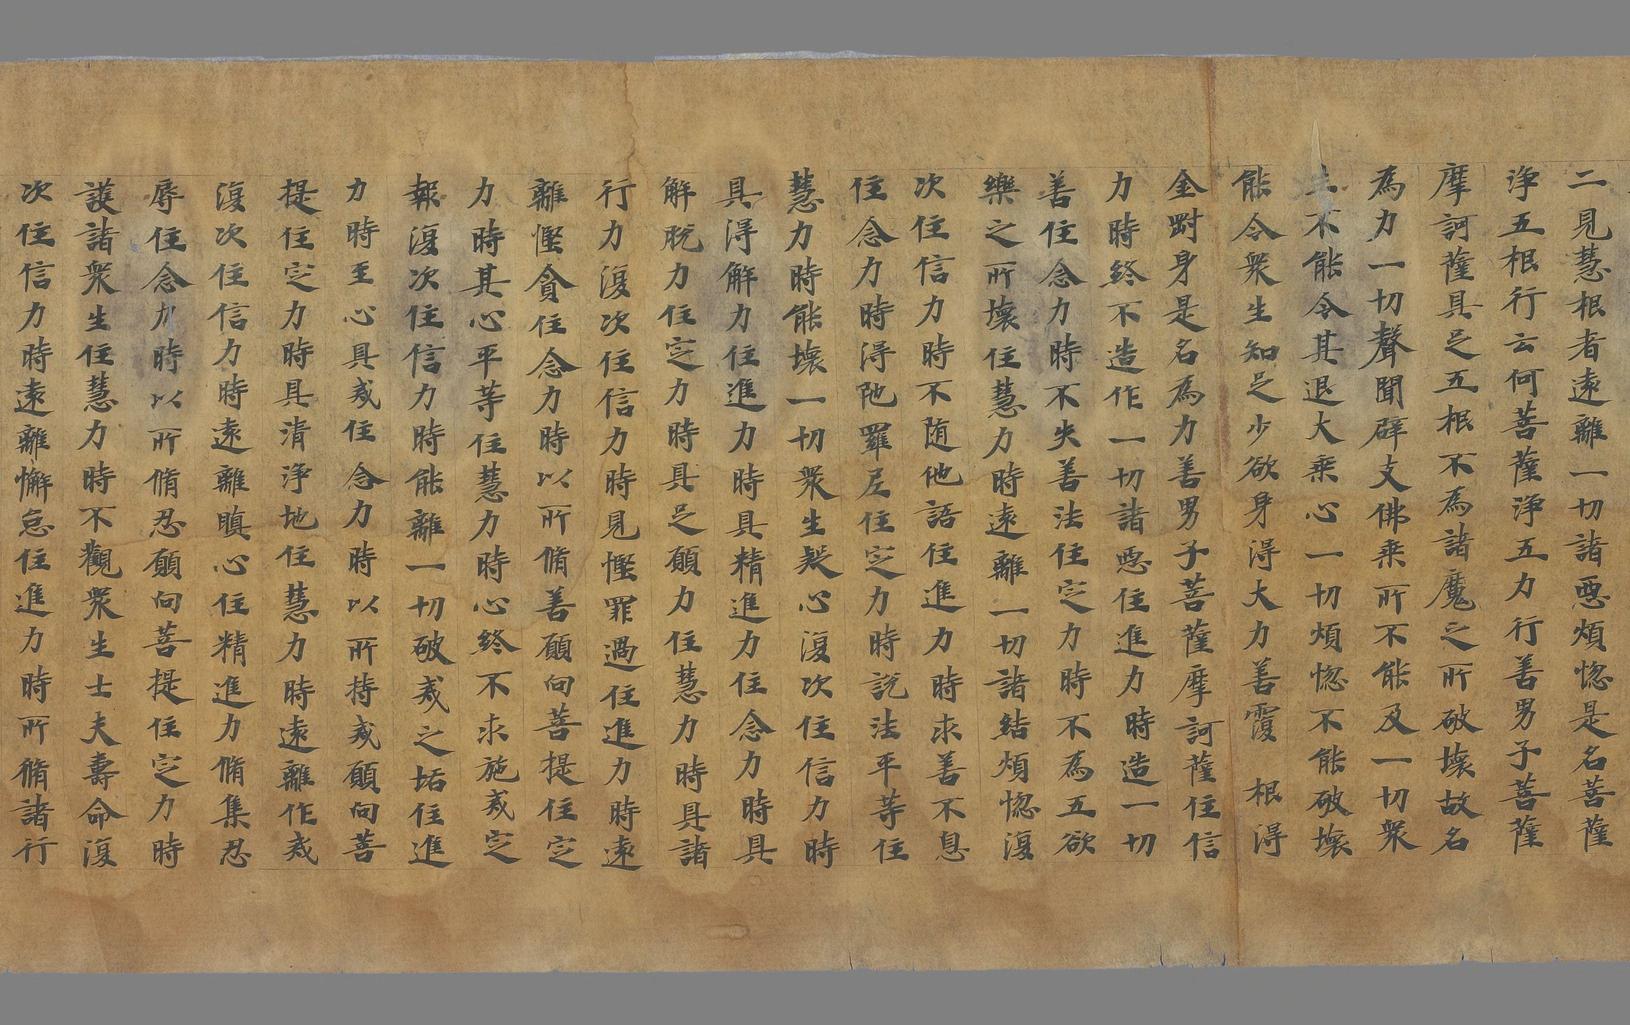 二見慧根者遠離一切諸惡煩惚是名菩薩
淨五根行云何菩薩淨五力行善男子菩薩
摩訶薩具足五根不為諸魔之所破壞故名
為力一切聲聞辟支佛乘所不能及一切衆
生不能令其退大乘心一切煩惚不能破壞
能令衆生知足少欲身得大力善覆 根得
金剛身是名為力善男子菩薩摩訶薩住信
力時終不造作一切諸惡住進力時造一切
善住念力時不失善法住定力時不為五欲
樂之所壞住慧力時遠離一切諸結煩惚復
次住信力時不隨他語住進力時求善不息
住念力時得陁羅尼住定力時說法平等住
慧力時能壞一切衆生疑心復次住信力時
具得解力住進力時具精進力住念力時具
解脫力住定力時具足願力住慧力時具諸
行力復次住信力時見慳罪過住進力時遠
離慳貪住念力時以所脩善願向菩提住定
力時其心平等住慧力時心終不求施戒定
報復次住信力時能離一切破戒之垢住進
力時至心具戒住念力時以所持戒願向菩
提住定力時具清淨地住慧力時遠離作戒
復次住信力時遠離瞋心住精進力脩集忍
辱住念力時以所脩忍願向菩提住定力時
護諸衆生住慧力時不觀衆生士夫壽命復
次住信力時遠離懈怠住進力時所脩諸行